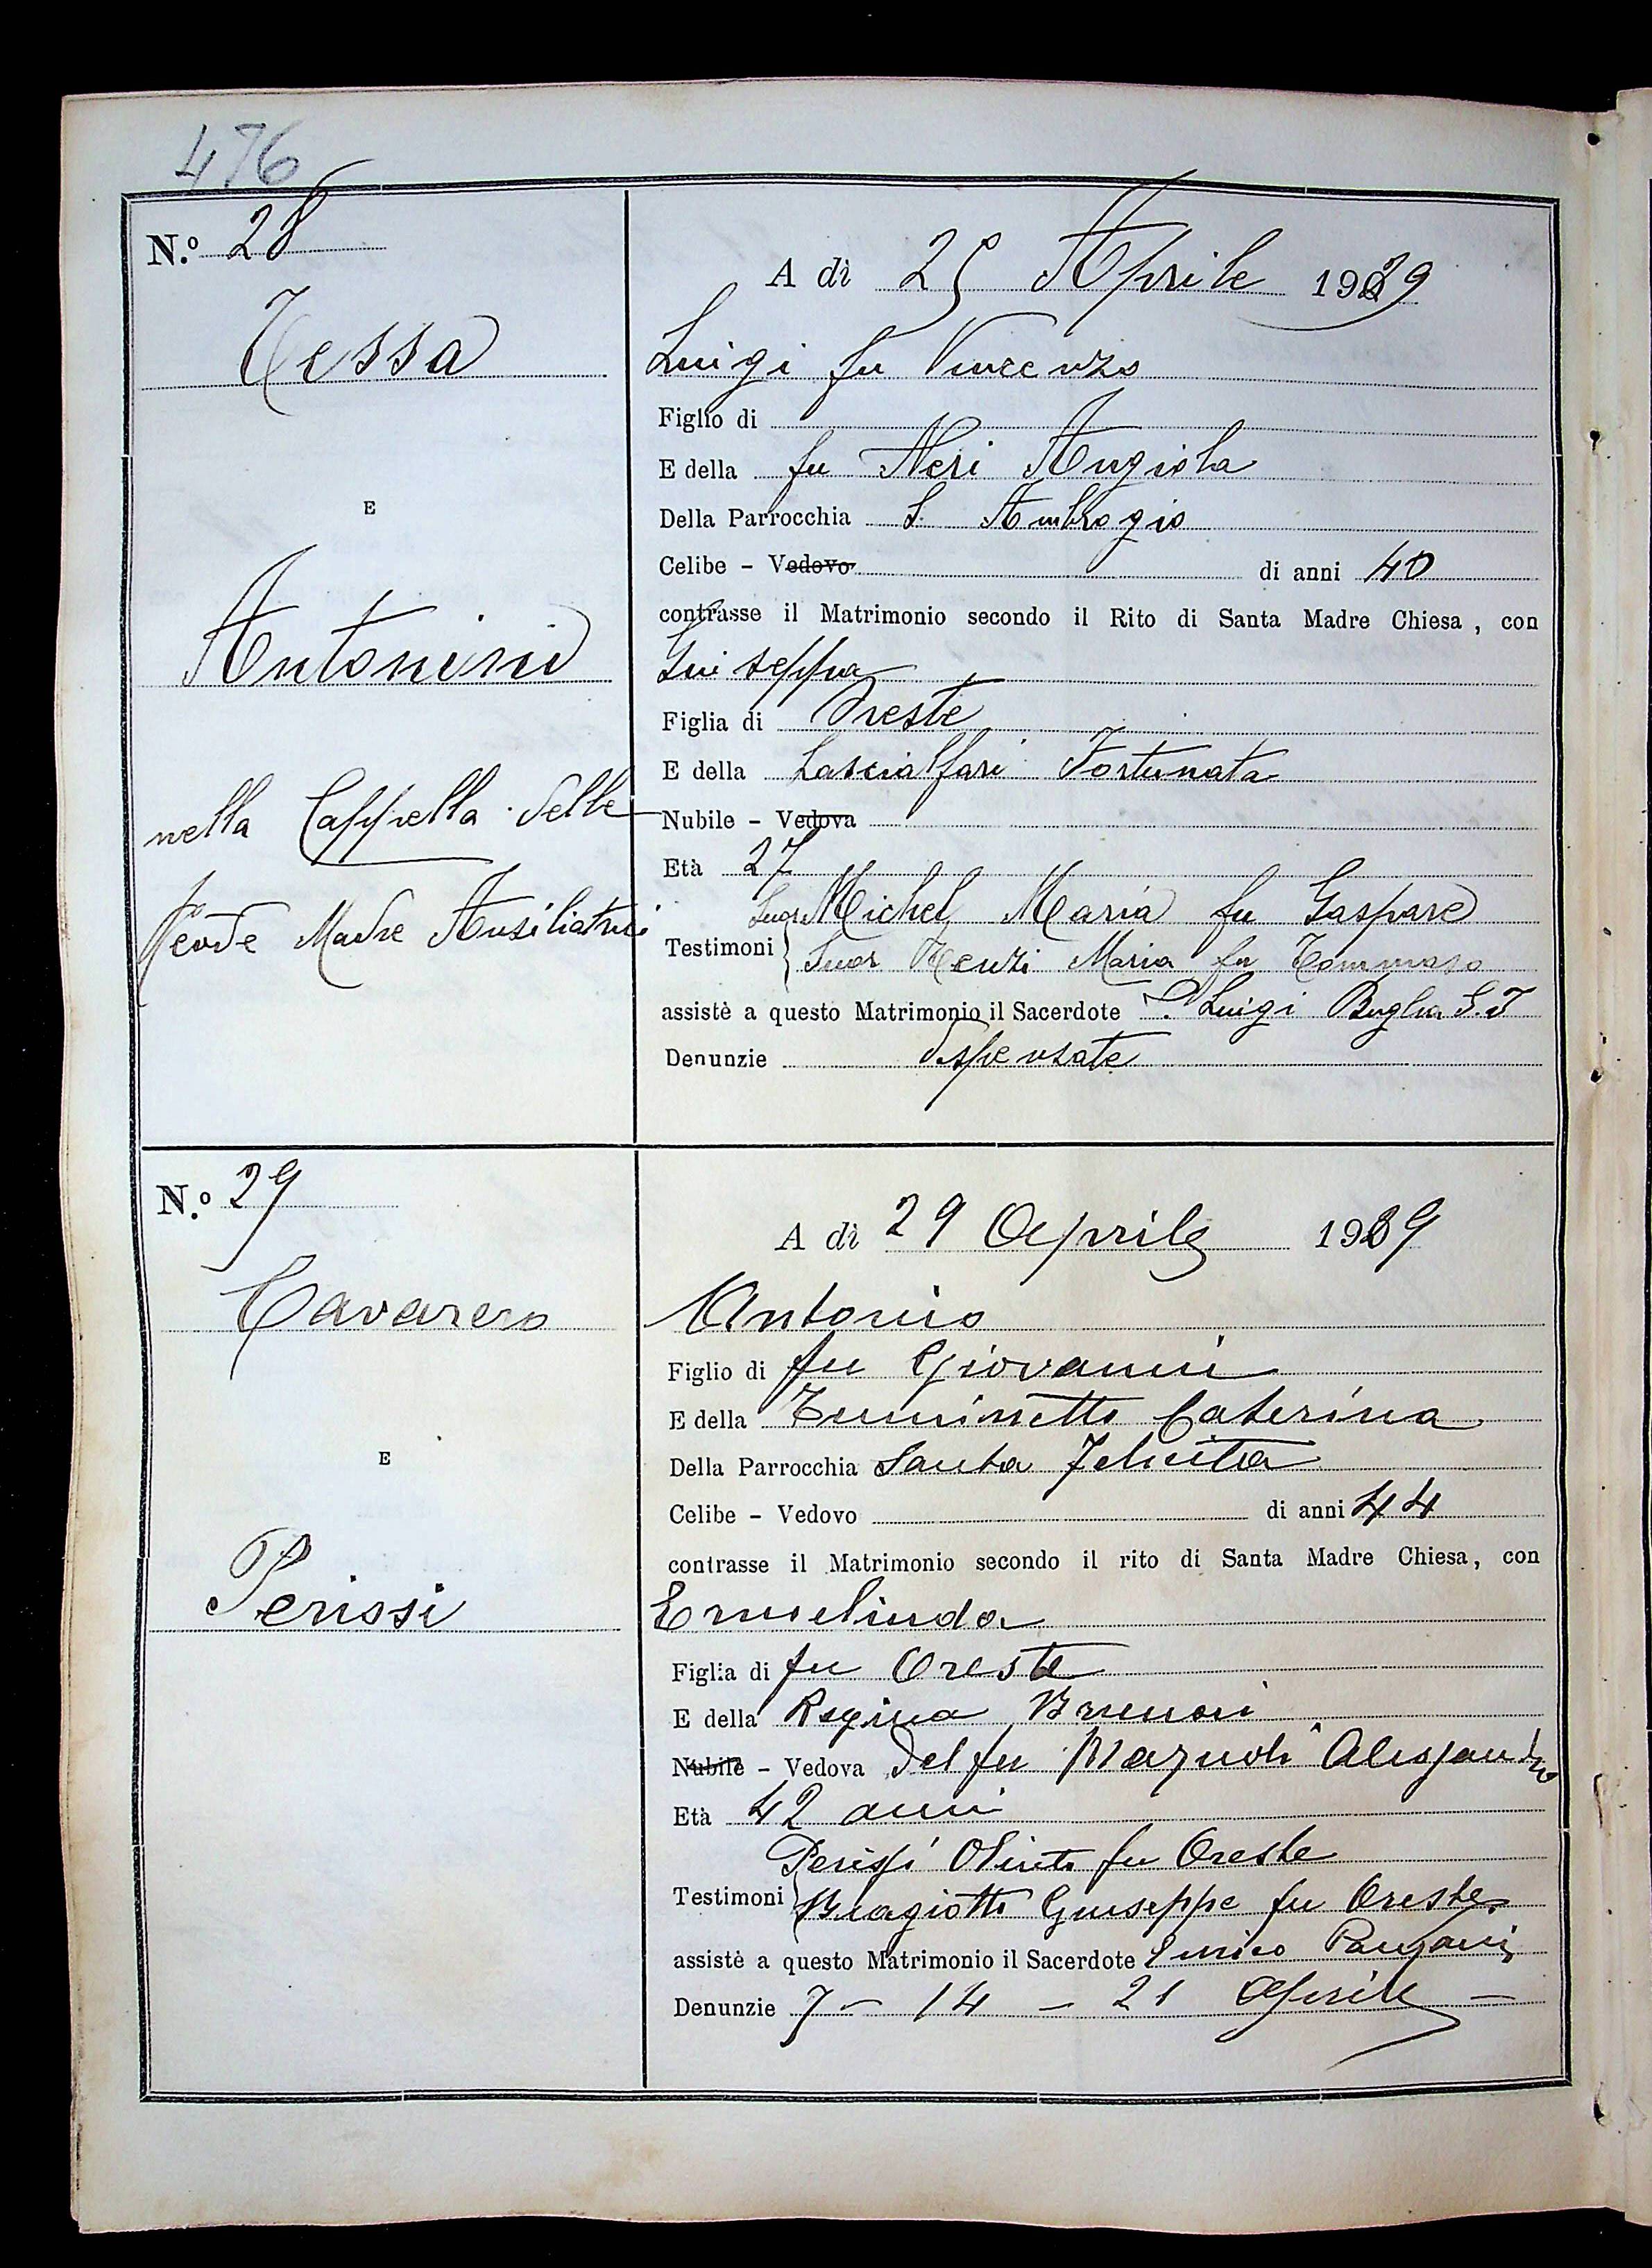 476
N.º 28
Tessa
E
Antonini
nella Cappella delle
Madre Ausiliatrici
A dì 25 Aprile 1929
Luigi fu Vincenzo
Figlio di
E della fu Neri Angiola
Della Parrocchia S. Ambrogio
Celibe - Vedovo di anni 40
contrasse il Matrimonio secondo il Rito di Santa Madre Chiesa, con
Giuseppa
Figlia di Oreste
E della Lascialfari Fortunata
Nubile - Vedova
Età 27
Suor Michel Maria fu Gaspare
Testimoni Suor Renzi Maria fu Tommaso
assistè a questo Matrimonio il Sacerdote P. Luigi S.J
Denunzie dispensate
N.º 29
Cavarero
E
Perissi
A dì 29 Aprile 1929
Antonio
Figlio di fu Giovanni
E della Caterina
Della Parrocchia Santa Felicita
Celibe - Vedovo di anni 44
contrasse il Matrimonio secondo il rito di Santa Madre Chiesa, con
Ermelinda
Figlia di fu Oreste
E della Regina Brunori
Nubile - Vedova del fu Magnoli Alessandro
Età 42 anni
Perissi Olinto fu Oreste
Testimoni Biagiotti Giuseppe fu Oreste
assistè a questo Matrimonio il Sacerdote Enrico Panzani
Denunzie 7 - 14 - 21 Aprile -